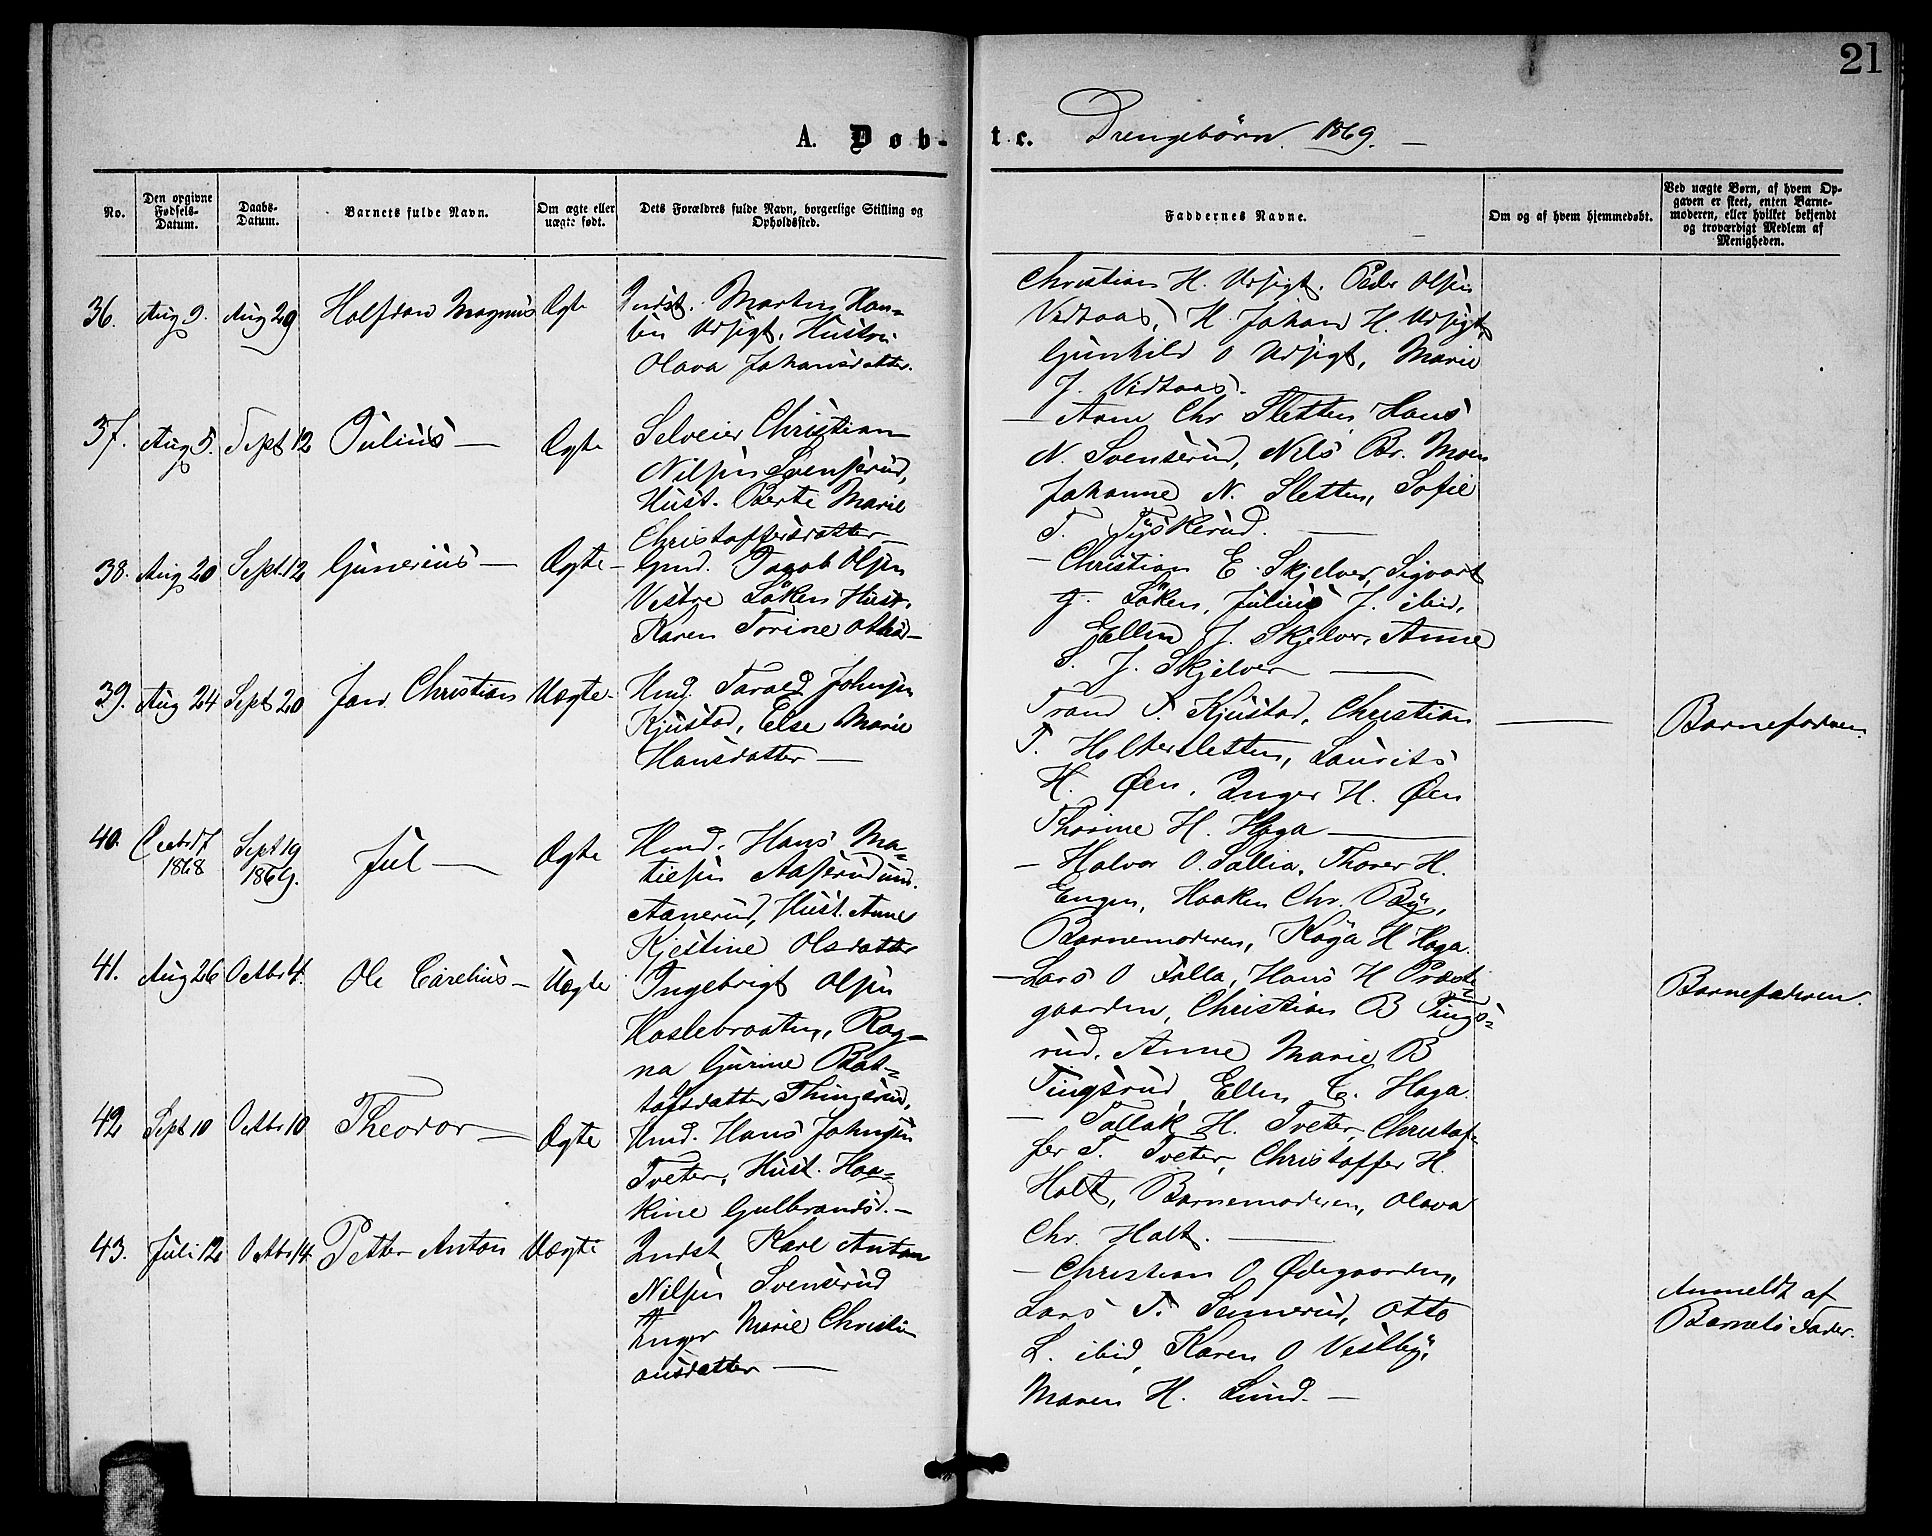 21
A. Døb- te. Drengebørn 1869. —
No.
Den opgivne Fødsels-Datum.
Daabs-Datum.
Barnets fulde Navn.
Om ægte eller uægte født.
Dets Forældres fulde Navn, borgerlige Stilling og Opholdssted.
Faddernes Navne.
Om og af hvem hjemmedøbt.
Ved uægte Børn, af hvem Opgaven er skeet, enten Barnemoderen, eller hvilket bekjendt og troværdigt Medlem af Menigheden.
36. Aug 9. Aug 29 Halfdan Magnus Ægte Indst. Martin Han-
sen Udsigt, Hustru
Olava Johansdatter.
Christian H. Udsigt. Peder Olsen
Vidtaas, H. Johan H. Udsigt,
Gunhild O Udsigt, Marie
J. Vidtaas.
37. Aug 5. Sept 12 Julius — Ægte Selveier Christian
Nilsen Svenserud,
Hust. Berte Marie
Christoffersdatter —
— Arne Chr Sletten, Hans
N. Svenserud, Nils Br. Moen
Johanne N. Sletten, Sofie
T. Tyskerud. —
38. Aug 20 Sept. 12 Gunerius — Ægte — Gmd. Jacob Olsen
Vestre Løken Hust.
Karen Torine Olsd —
— Christian E. Skjelver, Sigvart
G. Løken, Julius J. ibid,
Ellen J. Skjelver, Anne
S. J. Skjelver —
39. Aug 24 Sept 20 Jan Christian Uægte. Hmd. Tarald Johnsen
Kjustad, Else Marie
Hansdatter —
Trand T. Kjustad, Christian
T. Holtersletten, Laurits
H. Øen, Inger H. Øen
Thorine H. Haga —
— Barnefaderen.
40. 1868 Sept 19 1869. Jul — Ægte Hmd. Hans Ma-
tiesen Aaserud und.
Aanerud, Hust. Anne
Kjestine Olsdatter
— Halvor O. Lallia, Thorer H.
Engen, Haaken Chr. By,
Barnemoderen, Kaga H Haga.
41. Aug 26 Octbr 4. Ole Carelius — Uægte Ingebrigt Olsen
Haslebraaten, Rag-
na Gurine Bot-
tolfsdatter Thingsrud,
— Lars O Falla, Hans H Præste-
gaarden, Christian B Tings-
rud, Anne Marie B
Tingsrud, Ellen C. Haga.
Barnefaderen.
42 Sept 10 Octbr 10 Theodor — Ægte Hmd. Hans Johnsen
Tveter, Hust. Haa-
kine Gulbrandsd. —
— Tallak H. Tveter, Christof-
fer T. Tveter, Christoffer H.
Holt, Barnemoderen, Olava
Chr. Holt. —
43. Juli 12 Octbr 14 Petter Anton Uægte Indst, Karl Anton
Nilsen Svenserud
Inger Marie Christi-
ansdatter —
— Christian O Ødegaarden,
Lars T. Sunnerud, Otto
L. ibid, Karen O Vestby,
Maren H. Lund. —
Anmeldt af
Barnets Fader.